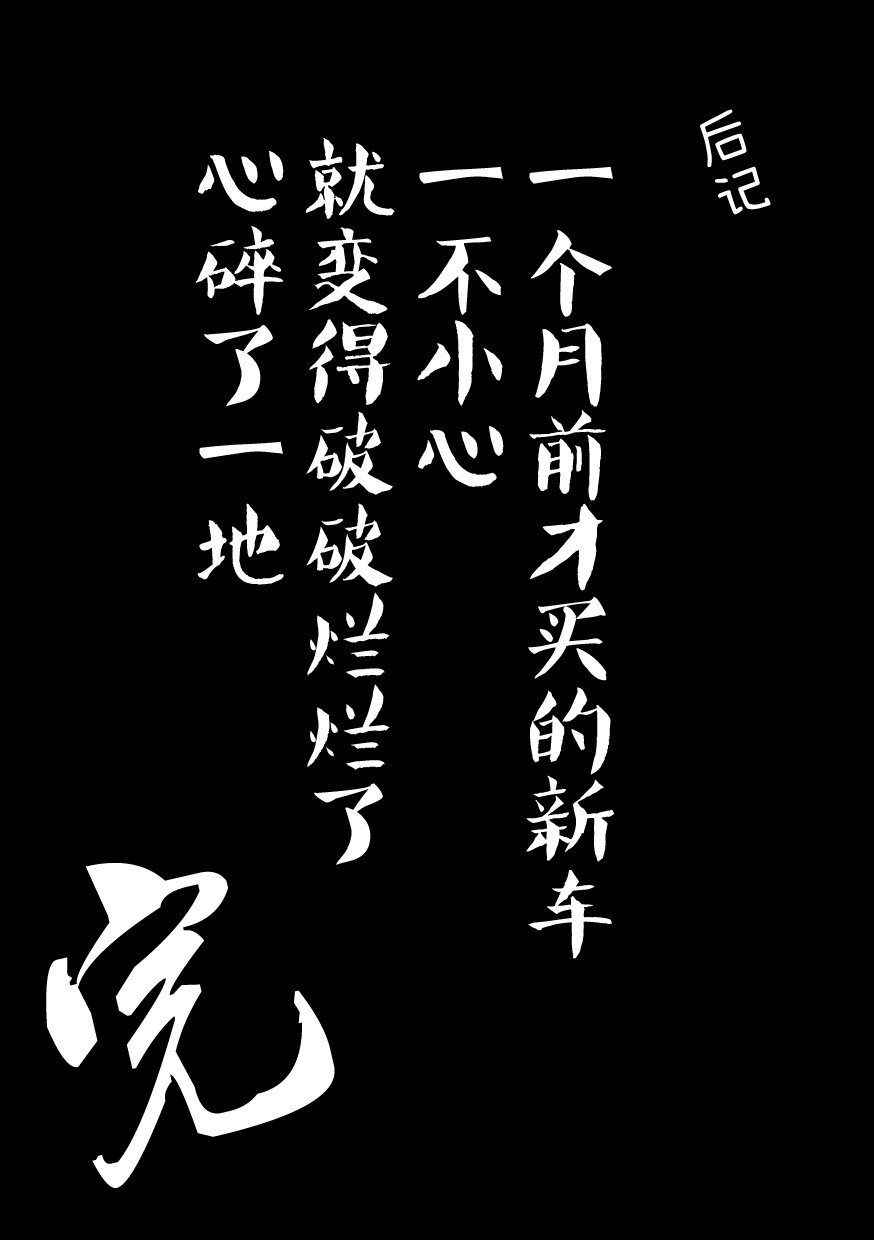 后记
一个月前才买的新车
一不小心
就变得破破烂烂了
心碎了一地
完